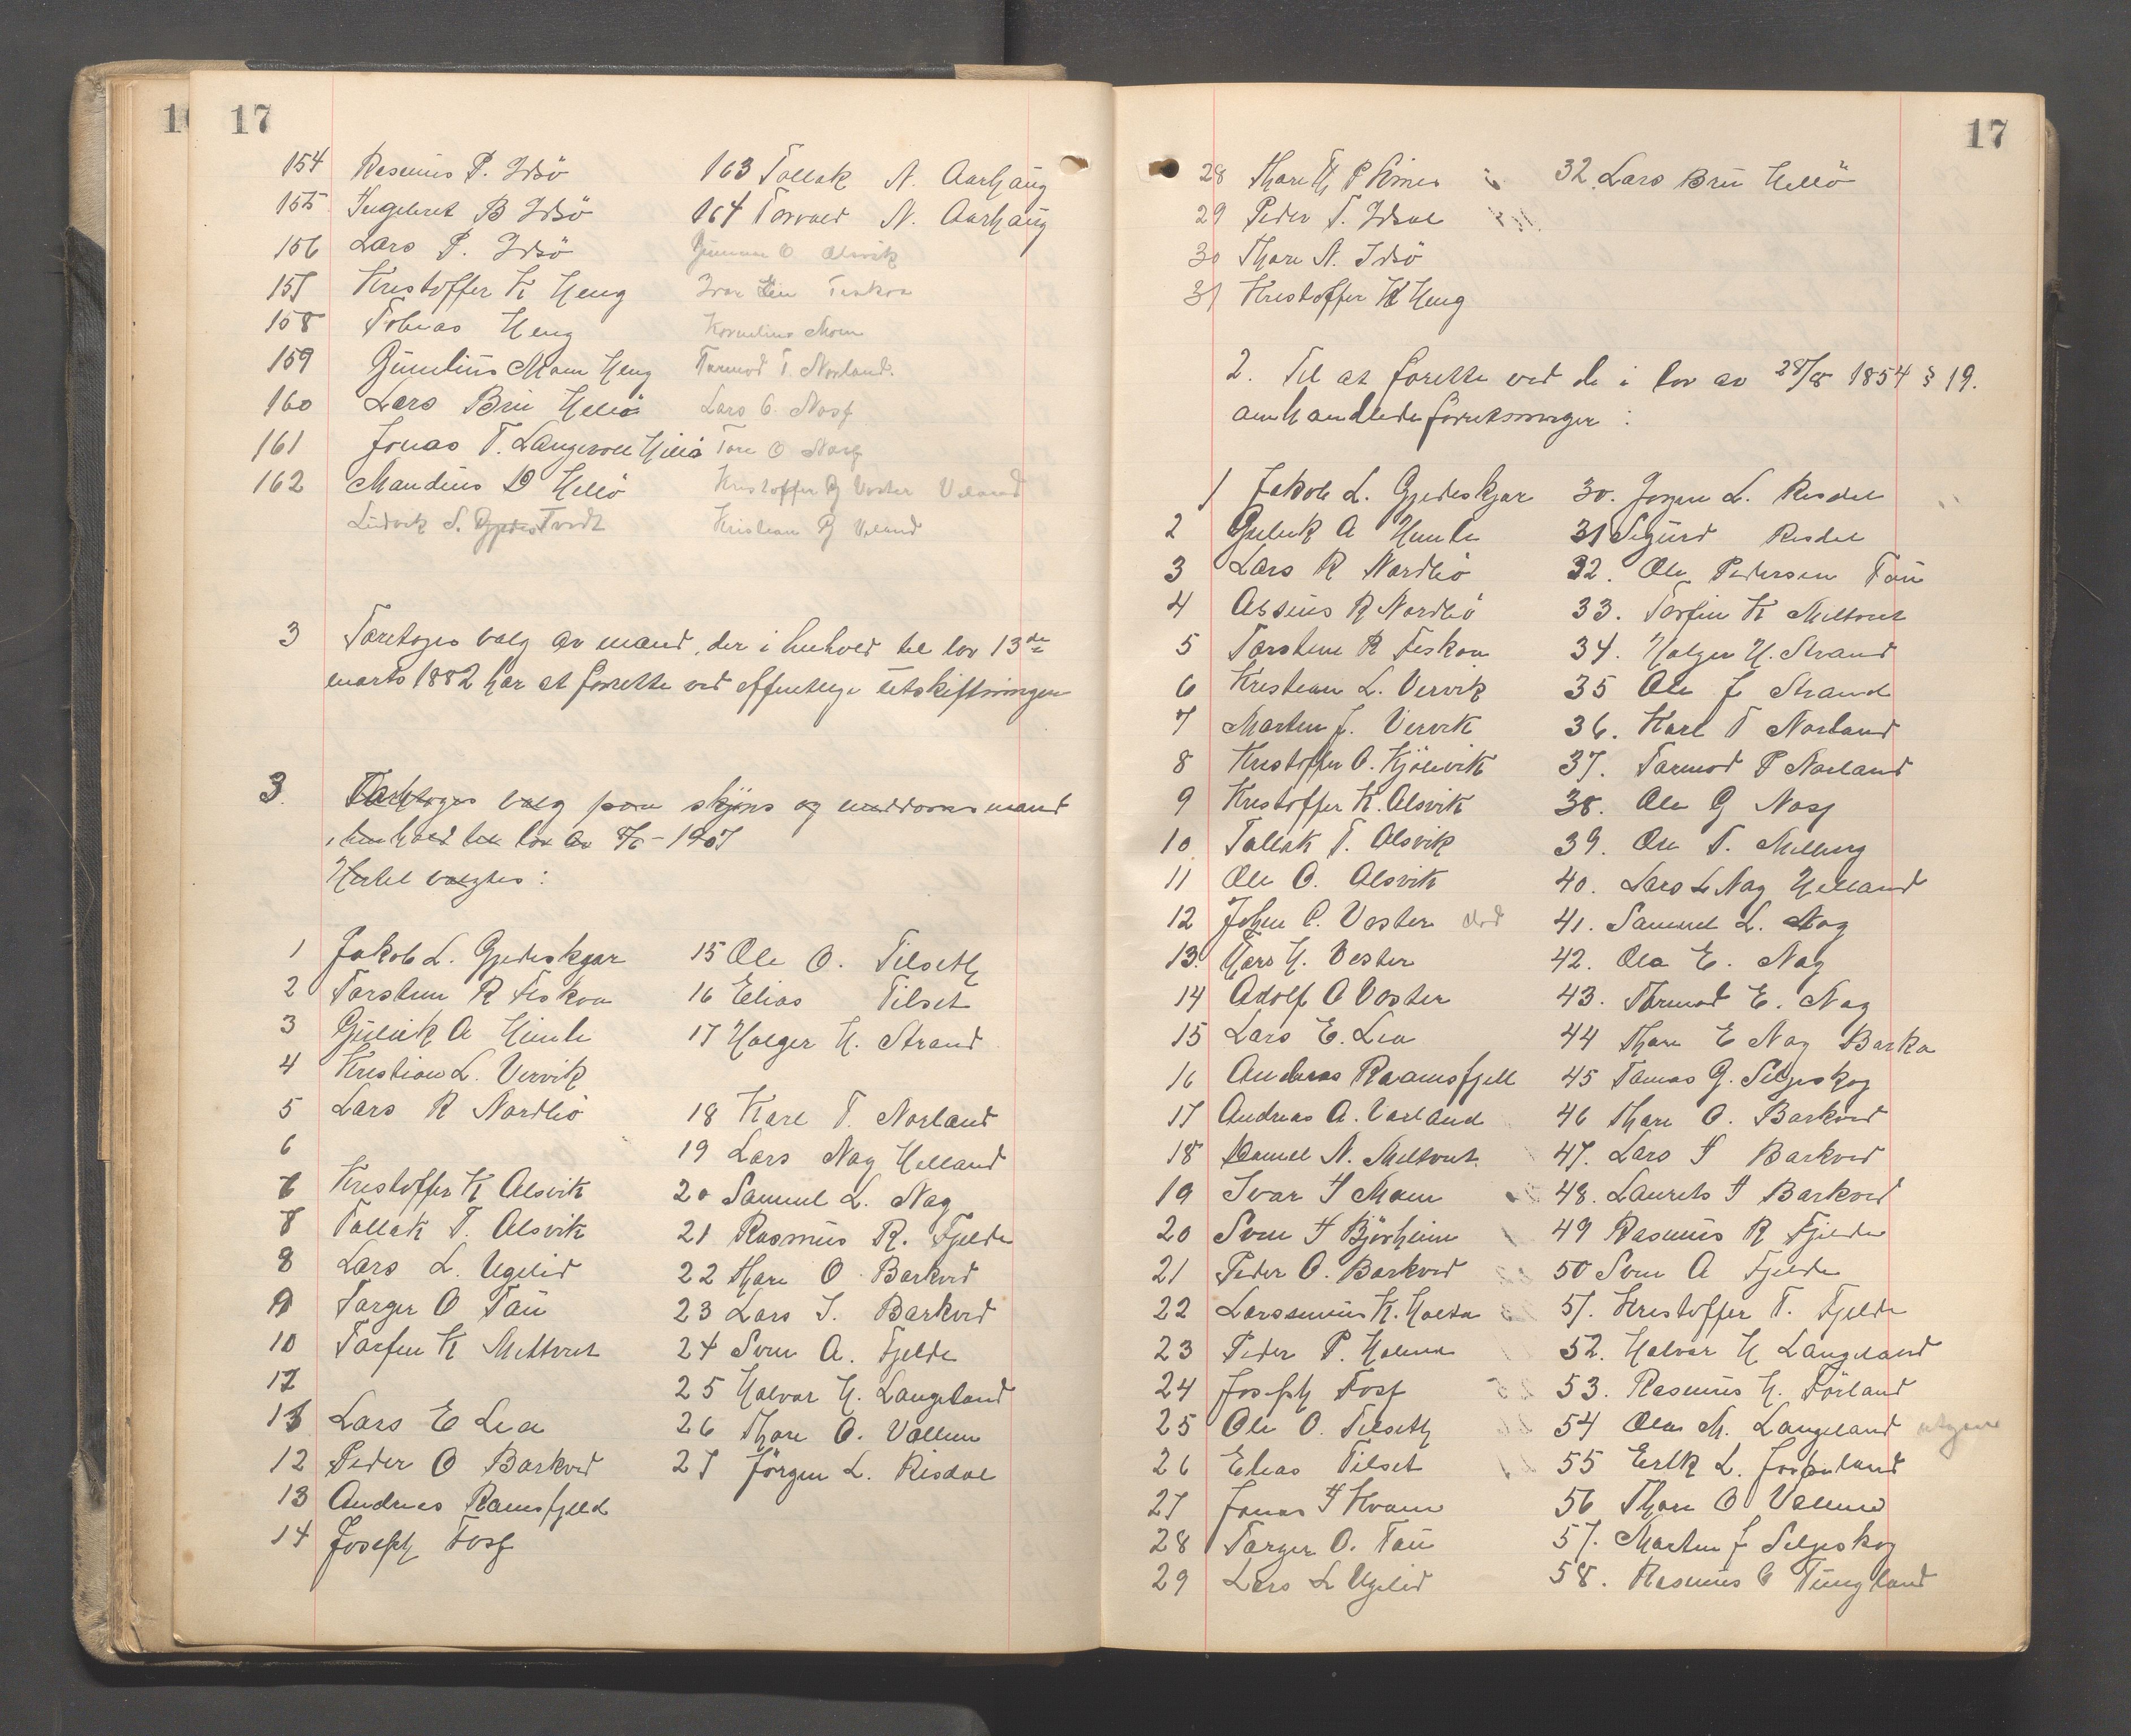 17
154 Rasmus P. Idsö
155 Ingebret B Idsö
156 Lars P. Idsö
157 Kristoffer K Heng
158 Tobias Heng
159 Gunelius Moum Heng
160 Lars Bru Hellö
161 Jonas T. Langevoll Hellö
162 Maudius D Hellö
Ludvik S. Tvedt
163 Tollak N. Aarhaug
164 Torvald N. Aarhaug
Gunnar O Alsvik
Ivar Lie Fiskaa
Kornelius Moum
Tormod T. Norland.
Lars O. Nosf
Tore O Nosf
Kristoffer R Voster Veland
Kristian R Veland
3 Foretoges valg av mænd, der i henhold til lov 13de
marts 1882 har at forrette ved offentlige utskiftninger
3. Foretoges valg paa skjöns og meddomsmænd
i henhold til lov av 1/6 - 1907
Hertil valgtes:
1 Jakob L. Gjedeskjær
2 Torsten R Fiskaa
3 Gulleik A Humle
4 Kristian L. Vervik
5 Lars R Nordbö
6
6 Kristoffer K Alsvik
7 Tollak T. Alsvik
8 Lars L. Ugelid
9 Torger O Tau
10 Torfin K Meltveit
12
13 Lars E Lea
12 Peder O Barkved
13 Andreas Ramsfjeld
14 Joseph Fosf
15 Ole O. Tilseth
16 Elias Tilset
17 Holger H. Strand
18 Karl T. Norland
19 Lars Nag Helland
20 Samuel L. Nag
21 Rasmus R. Fjelde
22 Thore O Barkved
23 Lars T. Barkved
24 Sven A. Fjelde
25 Halvar H. Langeland
26 Thore O. Vallem
27 Jörgen L. Risdal
17
28 Thore Th P
29 Peder T. Idsal
30 Thore N. Idsö
31 Kristoffer K Heng
32 Lars Bru Hellö
2. Til at forrette ved de i lov av 28/8 1854 § 19.
omhandlede forretninger:
1 Jakob L. Gjedeskjær
2 Gulleik A Humle
3 Lars R Nordbö
4 Assius R Nordbö
5 Torsten R Fiskaa
6 Kristian L. Vervik
7 Morten J. Vervik
8 Kristoffer O. Kjölevik
9 Kristoffer K. Alsvik
10 Tollak T. Alsvik
11 Ole O. Alsvik
12 John C. Voster död
13. Hans H. Vester
14 Adolf O Voster
15 Lars E. Lea
16 Andreas Raamsfjell
17 Andreas A. Varland
18 Samuel N. Meltveit.
19 Ivar T Moum
20 Sven T Björheim
21 Peder O. Barkved
22 Larssenius K. Holta
23 Peder P. Holmen
24 Joseph Fosf
25 Ole O. Tilseth
26 Elias Tilset
27 Jonas T Kvam
28 Torger O. Tau
29 Lars L Ugelid
30. Jörgen L. Risdal
31 Sigurd Risdal
32. Ole Pedersen Tau
33. Torfin K Meltveit
34. Holger H. Strand
35 Ole J Strand
36. Karl T Norland
37. Tormod P Norland
38. Ole G Nosf
39. Ole T. Melberg
40. Lars L Nag Helland
41. Samuel L. Nag
42. Ola E. Nag
43. Tormod E. Nag
44 Thore E Nag Barka
45 Tomas G. Selgeskog
46 Thore O. Barkved
47. Lars T Barkved
48. Laurits T Barkved
49 Rasmus R Fjelde
50 Sven A Fjelde
51. Kristoffer T. Fjelde
52. Halvar H Langeland
53. Rasmus H. Förland
54 Ola M. Langeland
55 Erik L. Jospeland
56 Thore O Vallem
57. Morten J Selgeskog
58. Rasmus C Tungland